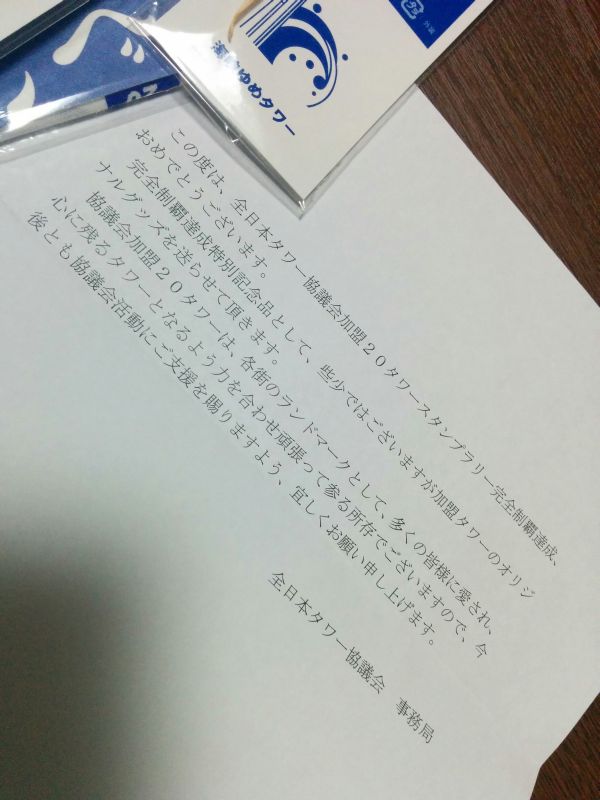 外装
ゆめタワー
この度は、全日本タワー協議会加盟２０タワースタンプラリー完全制覇達成、
おめでとうございます。
完全制覇達成特別記念品として、些少ではございますが加盟タワーのオリジ
ナルグッズを送らせて頂きます。
協議会加盟２０タワーは、各街のランドマークとして、多くの皆様に愛され、
心に残るタワーとなるよう力を合わせ頑張って参る所存でございますので、今
後とも協議会活動にご支援を賜りますよう、宜しくお願い申し上げます。
全日本タワー協議会　事務局